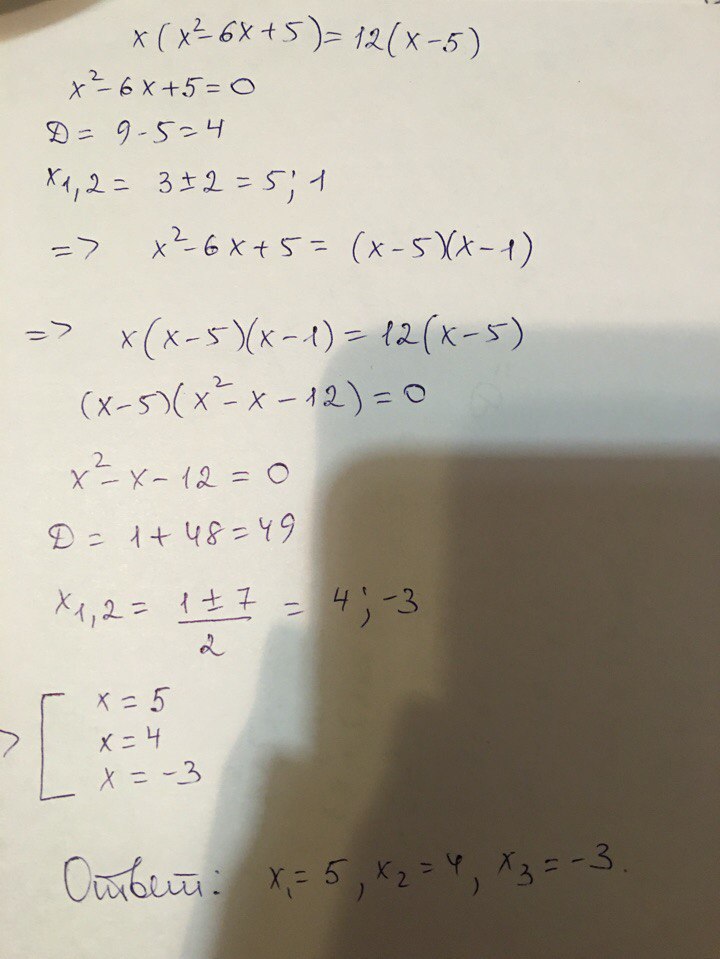 x(x²-6x+5)=12(x-5)
x²-6x+5=0
D = 9-5=4
x1,2 = 3±2 = 5; 1
=> x²-6x+5 = (x-5)(x-1)
=> x(x-5)(x-1) = 12(x-5)
(x-5)(x²-x-12)=0
x²-x-12 = 0
D = 1+48=49
x1,2 = (1±7)/2 = 4; -3
> [ x = 5
x = 4
x = -3
Ответ: x₁= 5, x₂ = 4, x₃ = -3.